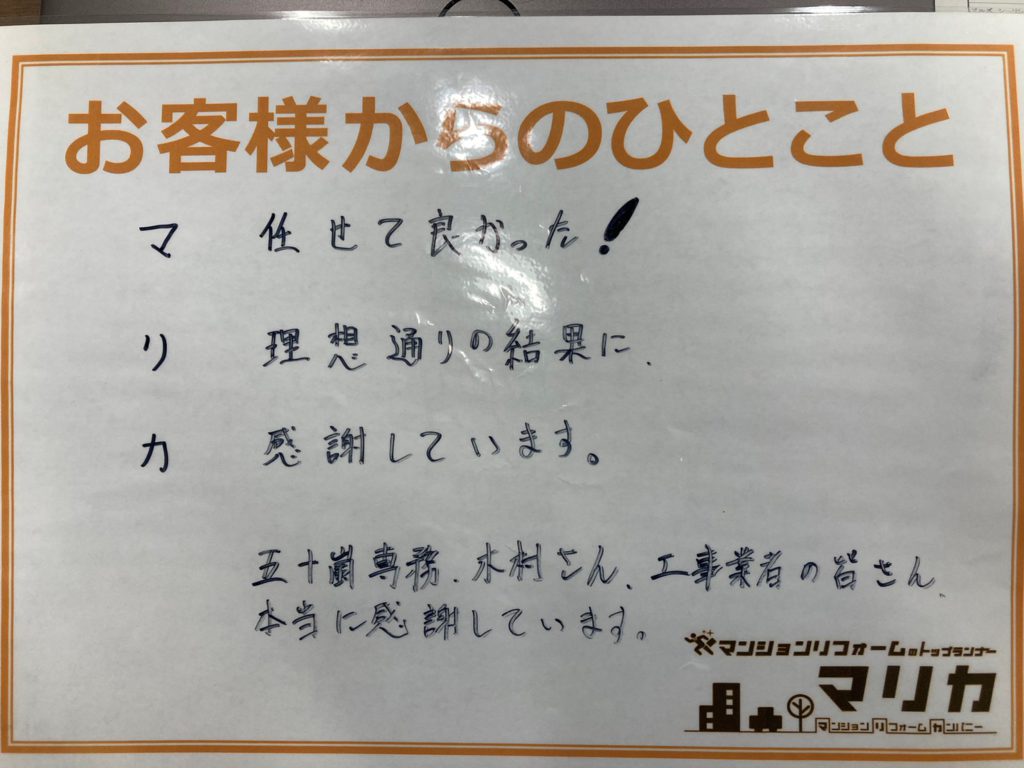 お客様からのひとこと
マ 任せて良かった!
リ 理想通りの結果に、
カ 感謝しています。
五十嵐専務、木村さん、工事業者の皆さん、
本当に感謝しています。
マンションリフォームのトップランナー
マリカ
マンションリフォームカンパニー